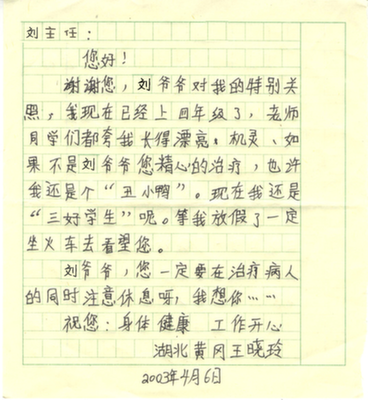 刘主任：
您好！
谢谢您，刘爷爷对我的特别关
照，我现在已经上四年级了，老师
同学们都夸我长得漂亮、机灵、如
果不是刘爷爷您精心的治疗，也许
我还是个“丑小鸭”。现在我还是
“三好学生”呢。等我放假了一定
坐火车去看望您。
刘爷爷，您一定要在治疗病人
的同时注意休息呀，我想你……
祝您：身体健康 工作开心
湖北黄冈王晓玲
2003年4月6日